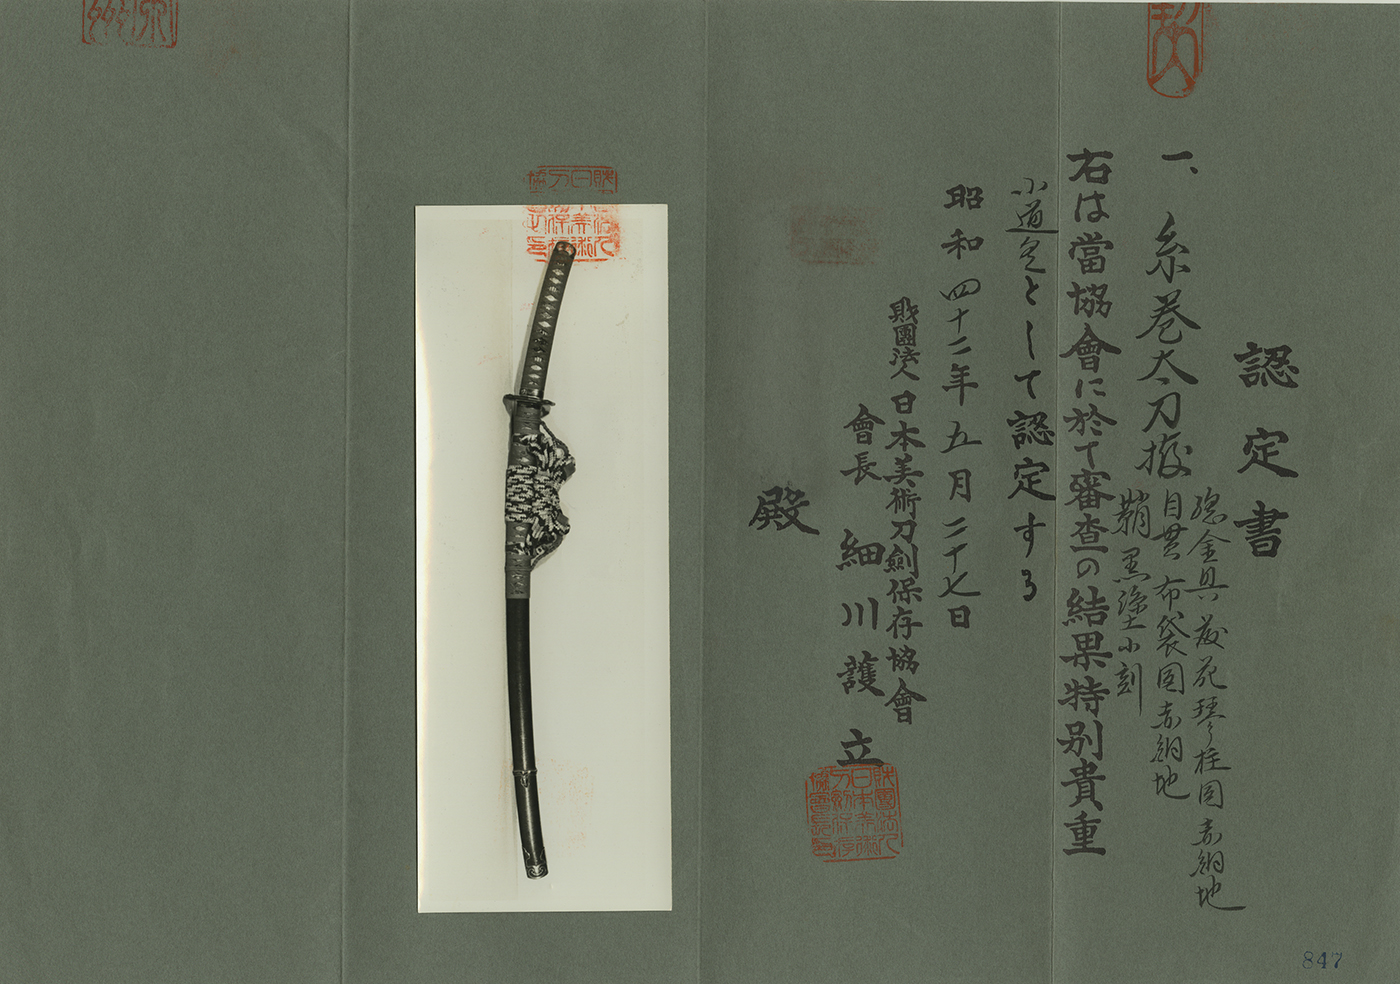 認定書
一、糸巻太刀拵
總金具 菊花琴柱図赤銅地
目貫 布袋図赤銅地
鞘 黒塗小刻
右は當協會に於て審査の結果特別貴重
小道具として認定する
昭和四十二年五月二十七日
財團法人日本美術刀劍保存協會
會長 細川護立
殿
847